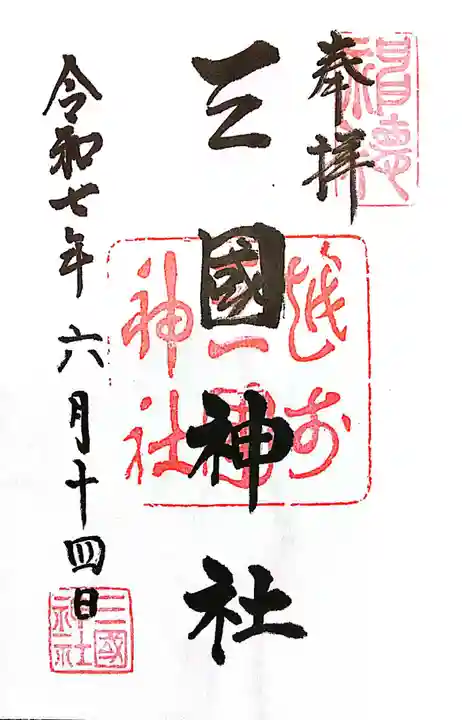 奉拝
三國神社
令和七年六月十四日
越前
三國
神社
三國
神社